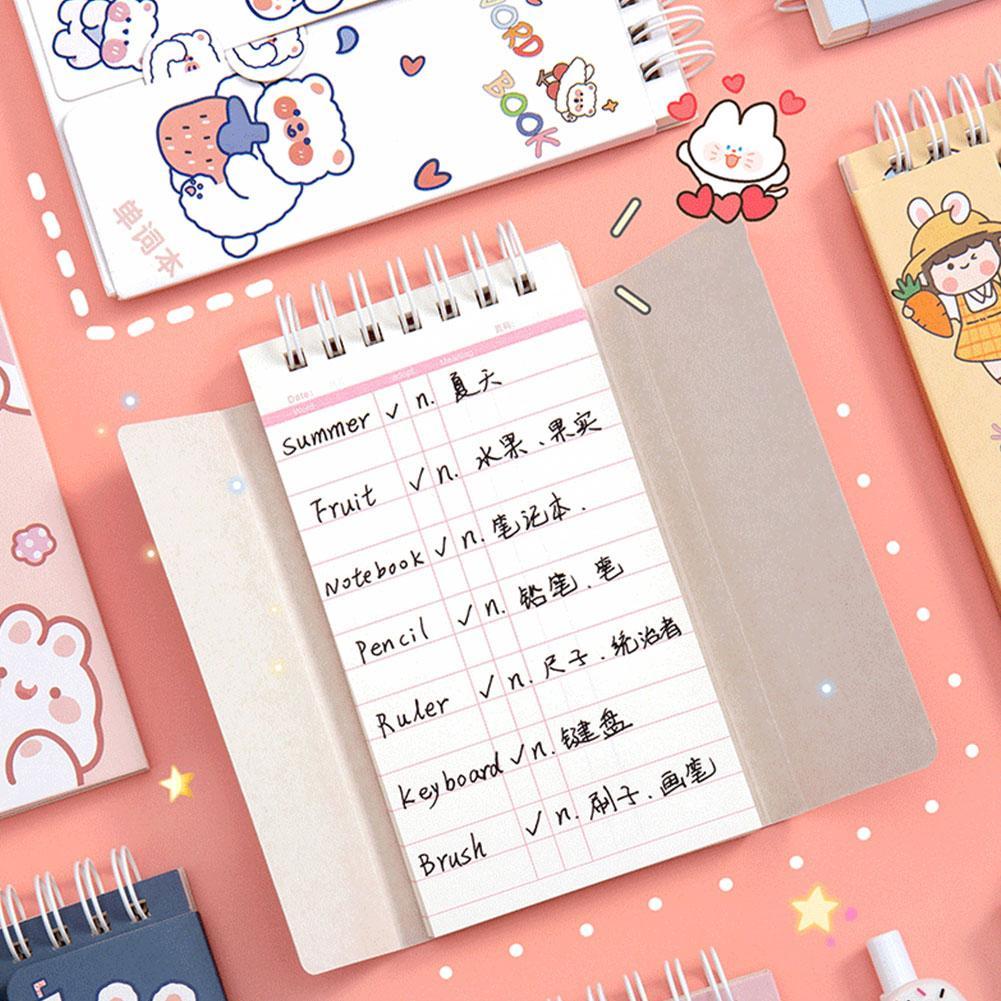 WORD
BOOK
单词本
Date:
页码:
Word adopt Meaning
summer ✓ n. 夏天
Fruit ✓ n. 水果、果实
Notebook ✓ n. 笔记本.
Pencil ✓ n. 铅笔、笔
Ruler ✓ n. 尺子.统治者
Keyboard ✓ n. 键盘
Brush ✓ n. 刷子.画笔